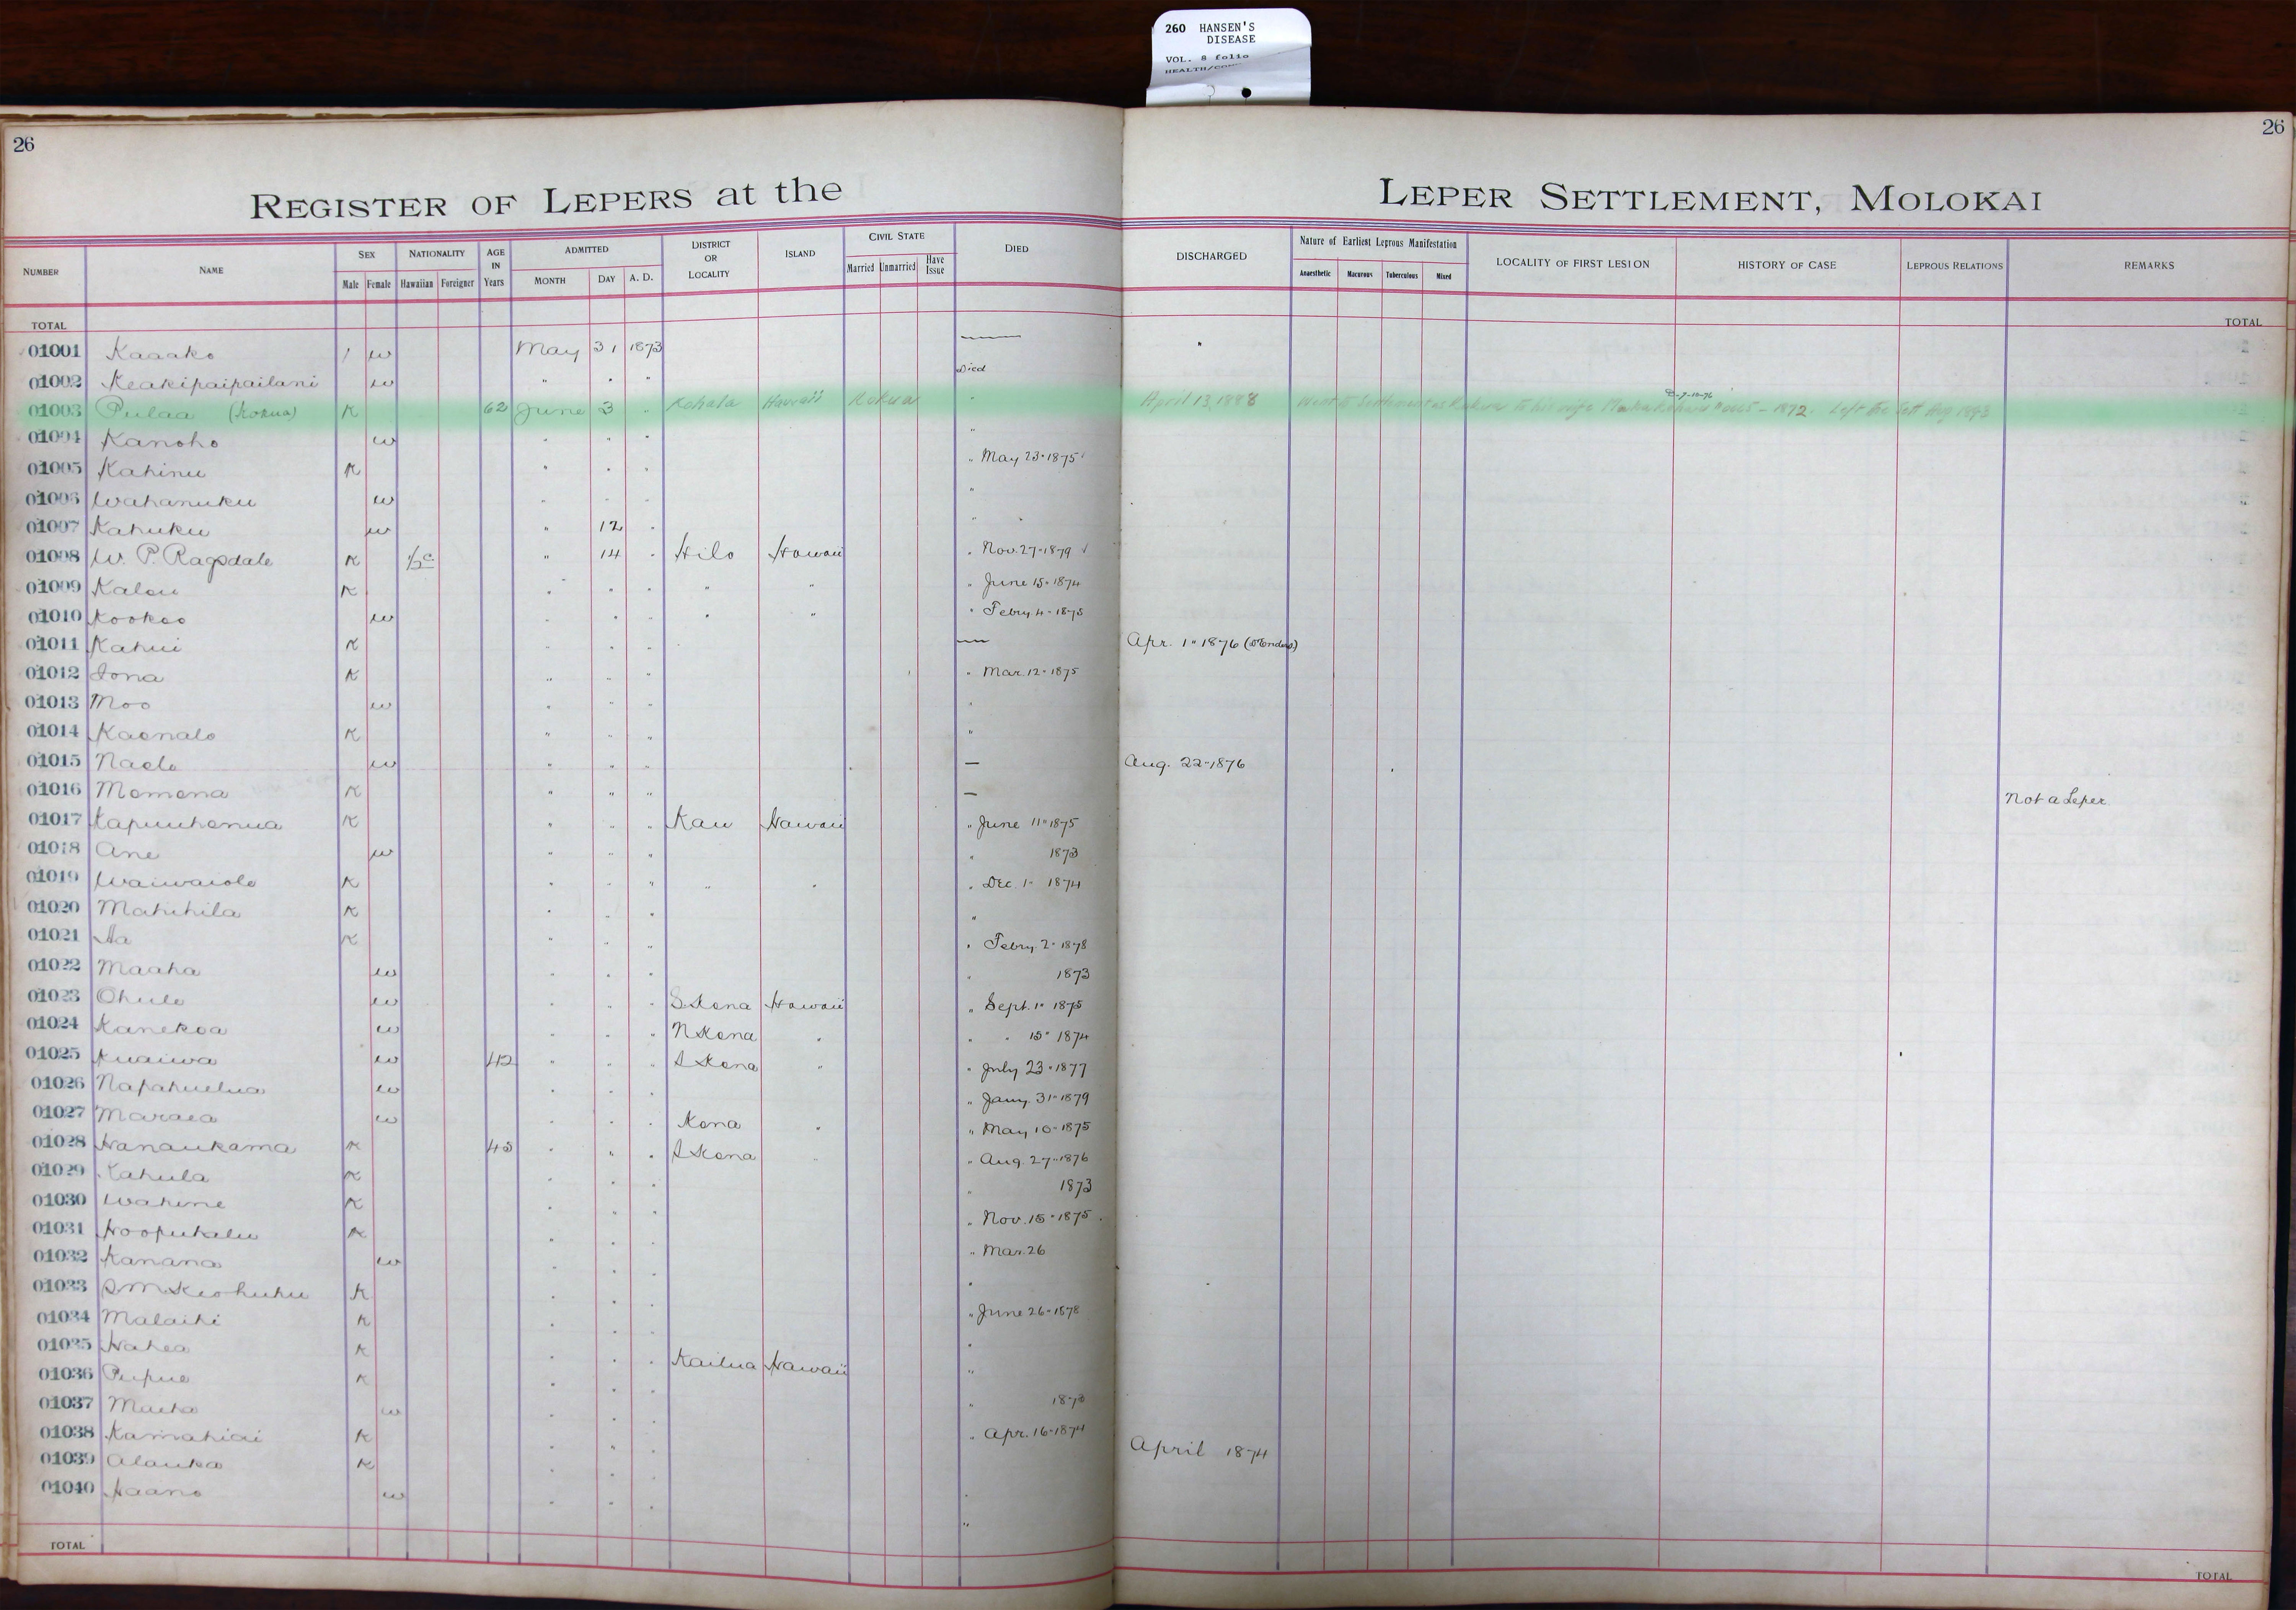 260 HANSEN'S
DISEASE
VOL. 8 folio
HEALTH/
26
26
REGISTER OF LEPERS at the LEPER SETTLEMENT, MOLOKAI
NUMBER NAME SEX NATIONALITY AGE IN Years ADMITTED DISTRICT OR LOCALITY ISLAND CIVIL STATE DIED DISCHARGED Nature of Earliest Leprous Manifestation LOCALITY OF FIRST LESION HISTORY OF CASE LEPROUS RELATIONS REMARKS
Male Female Hawaiian Foreigner MONTH DAY A. D. Married Unmarried Have Issue Anaesthetic Macurous Tuberculous Mixed
TOTAL TOTAL
01001 Kaaako / w May 31 1873 — "
01002 Keakipaipailani w " " " Died
01003 Pulaa (Kokua) K 62 June 3 " Kohala Hawaii Kokua " April 13, 1888 Went to Settlement as Kokua to his wife 1872. Left the Sett Aug 1893
01004 Kanoho w " " " "
01005 Kahinu K " " " " May 23 · 1875
01006 Wahanuku w " " " "
01007 Kahuku w " 12 " "
01008 W. P. Ragsdale K ½ c " 14 " Hilo Hawaii " Nov. 27 · 1879
01009 Kalou K " " " " " " June 15 · 1874
01010 Kookoo w " " " " " " Febry. 4 - 1875
01011 Kahui K " " " — Apr. 1 " 1876
01012 Iona K " " " " Mar. 12 · 1875
01013 Moo w " " " "
01014 Kaonalo K " " " "
01015 Naelo w " " " — Aug. 22 - 1876
01016 Momona K " " " — Not a Leper
01017 Kapuuhonua K " " " Kau Hawaii " June 11 " 1875
01018 Ane w " " " " 1873
01019 Waiwaiole K " " " " " " Dec. 1 - 1874
01020 Mahihila K " " " "
01021 Aa K " " " " Febry. 2 · 1878
01022 Maaha w " " " " 1873
01023 Ohule w " " " S. Kona Hawaii " Sept. 1 " 1875
01024 Kanekoa w " " " N Kona " " " 15 " 1874
01025 Kuaiwa w 42 " " " S Kona " " July 23 · 1877
01026 Napahuelua w " " " " Jany. 31 " 1879
01027 Maraea w " " " Kona " " May 10 · 1875
01028 Hanaukama K 45 " " " S Kona " " Aug. 27 " 1876
01029 Kahula K " " " " 1873
01030 Wahine K " " " " Nov. 15 " 1875
01031 Hoopukalu K " " " " Mar. 26
01032 Kanana w " " " "
01033 S M Keohuhu K " " " " June 26 · 1878
01034 Malaihi K " " " "
01035 Hahea K " " " Kailua Hawaii "
01036 Pupue K " " " " 1873
01037 Maeha w " " " " Apr. 16 · 1874
01038 Kamahiai K " " " April 1874
01039 Alauka K " " " "
01040 Haano w " " " "
TOTAL TOTAL